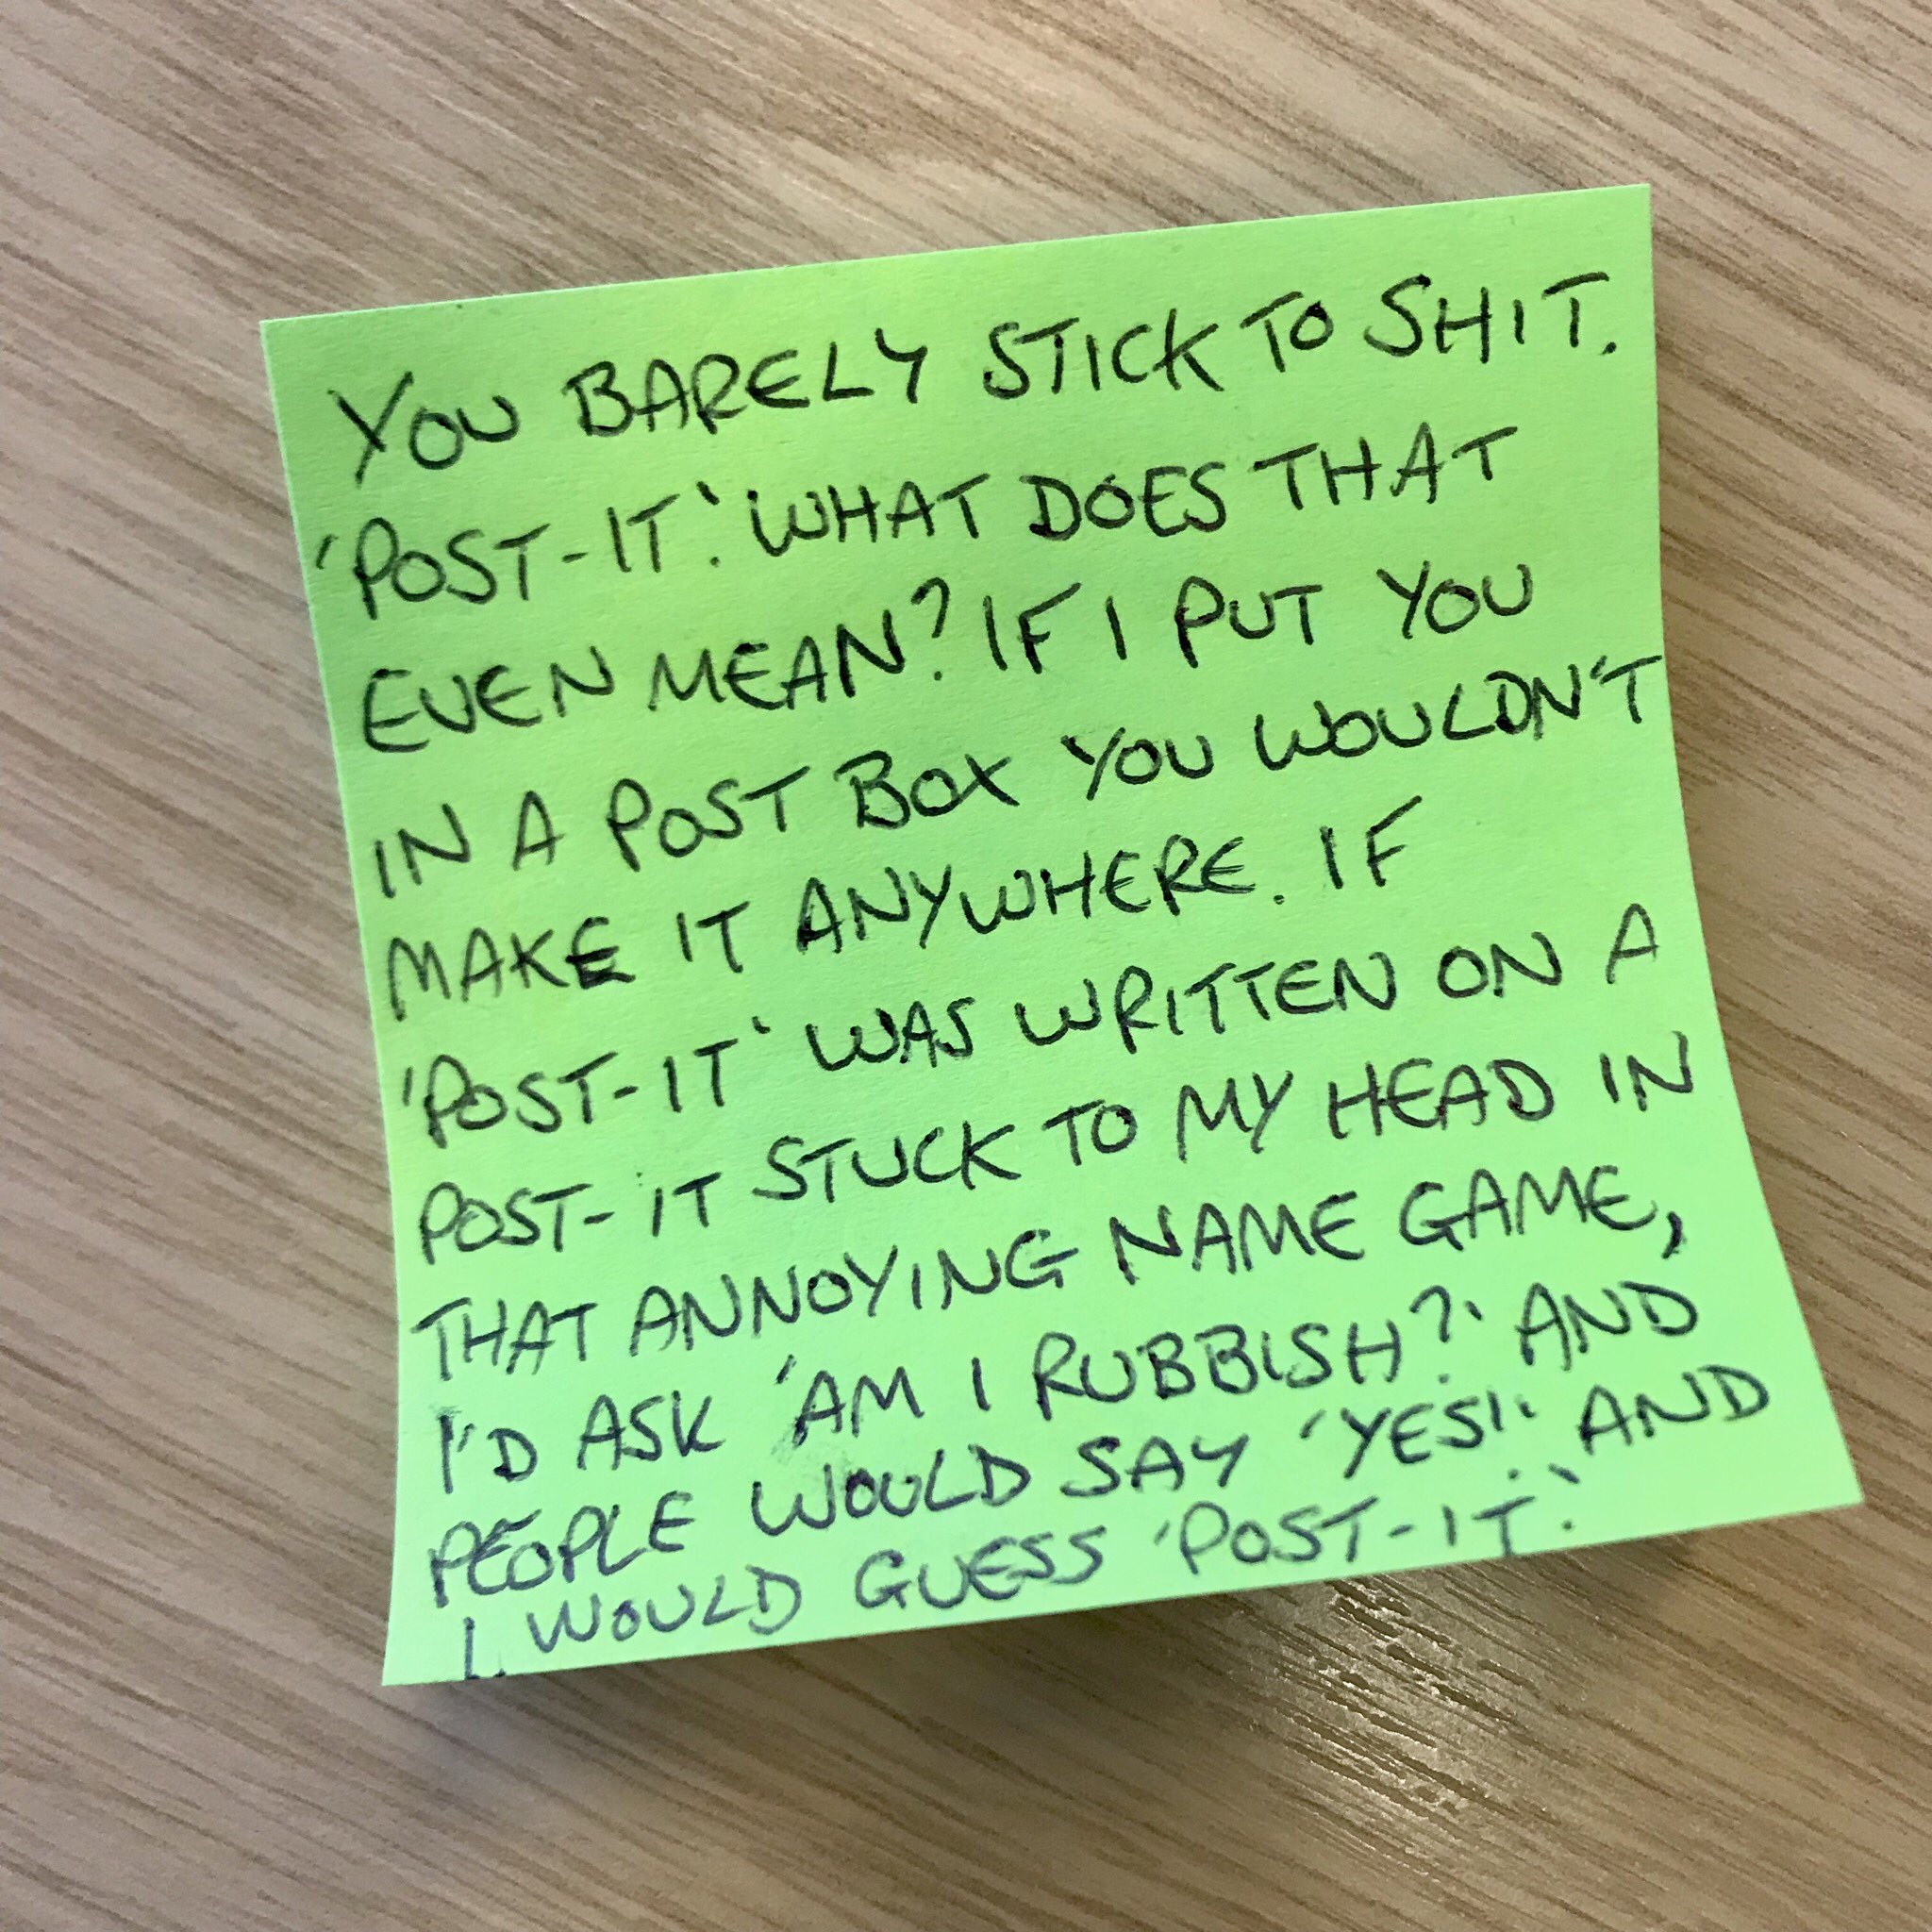 YOU BARELY STICK TO SHIT.
'POST-IT'. WHAT DOES THAT
EVEN MEAN? IF I PUT YOU
IN A POST BOX YOU WOULDN'T
MAKE IT ANYWHERE. IF
'POST-IT' WAS WRITTEN ON A
POST-IT STUCK TO MY HEAD IN
THAT ANNOYING NAME GAME,
I'D ASK 'AM I RUBBISH?' AND
PEOPLE WOULD SAY 'YES!' AND
I WOULD GUESS 'POST-IT.'